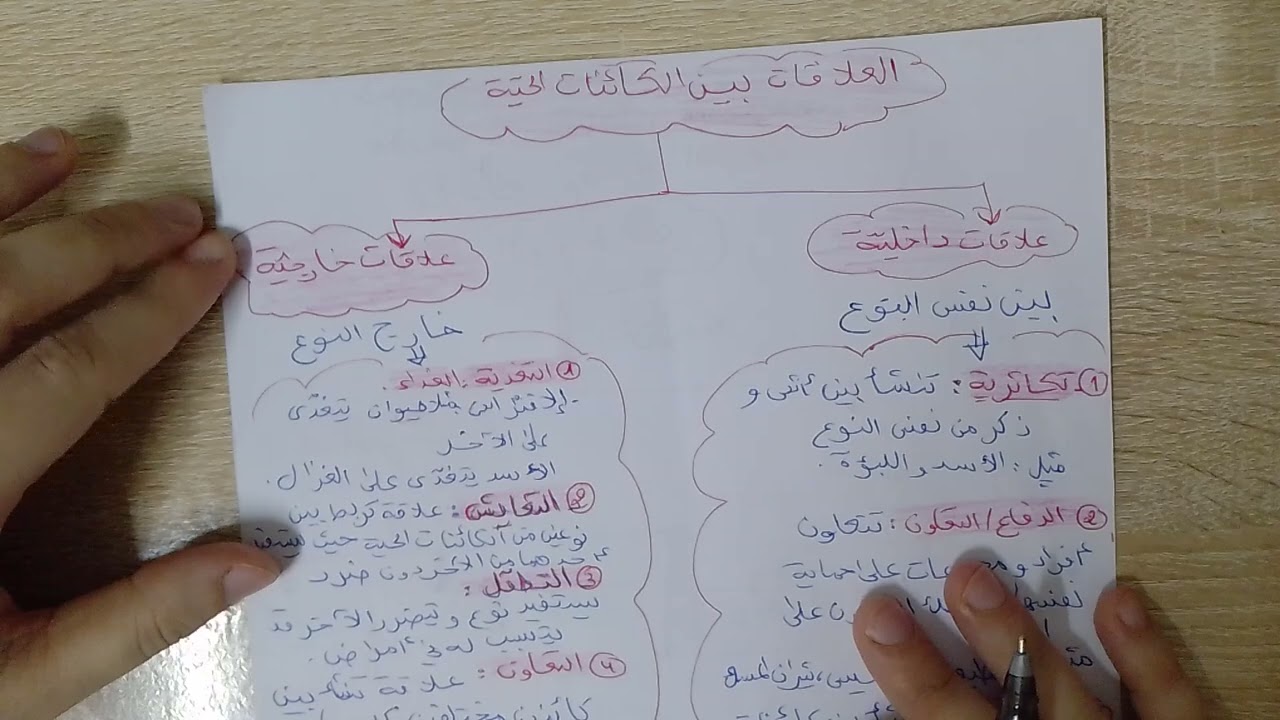 العلاقات بين الكائنات الحية
علاقات داخلية
بين نفس النوع
1 تكاثرية: تنشأ بين أنثى و
ذكر من نفس النوع
مثل: الأسد واللبؤة.
2 الدفاع/التعاون: تتعاون
أفراد و على حماية
على
علاقات خارجية
خارج النوع
1 التغذية: الغذاء.
- الافتراس: حيوان يتغذى
على الآخر
الأسد يتغذى على الغزال.
2 التعايش: علاقة تربط بين
نوعين من الكائنات الحية حيث يستفيد
أحدهما من الآخر دون ضرر
3 التطفل:
يستفيد نوع ويتضرر الآخر قد
يتسبب له في أمراض.
4 التعاون: علاقة تنشأ بين
كائنين مختلفين